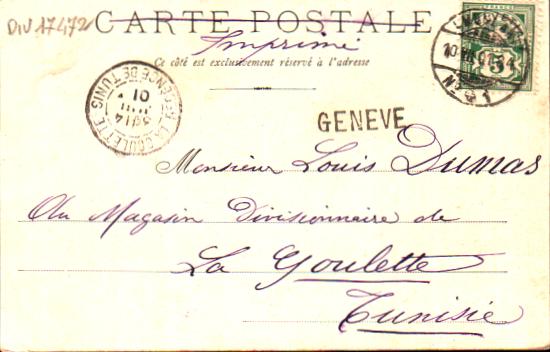 DIV 17472
CARTE POSTALE
Imprimé
Ce côté est exclusivement réservé à l'adresse
5
No 1
LA GOULETTE
REGENCE DE TUNIS
14
01
GENEVE
Monsieur Louis Dumas
Au Magasin Divisionnaire de
La Goulette
Tunisie